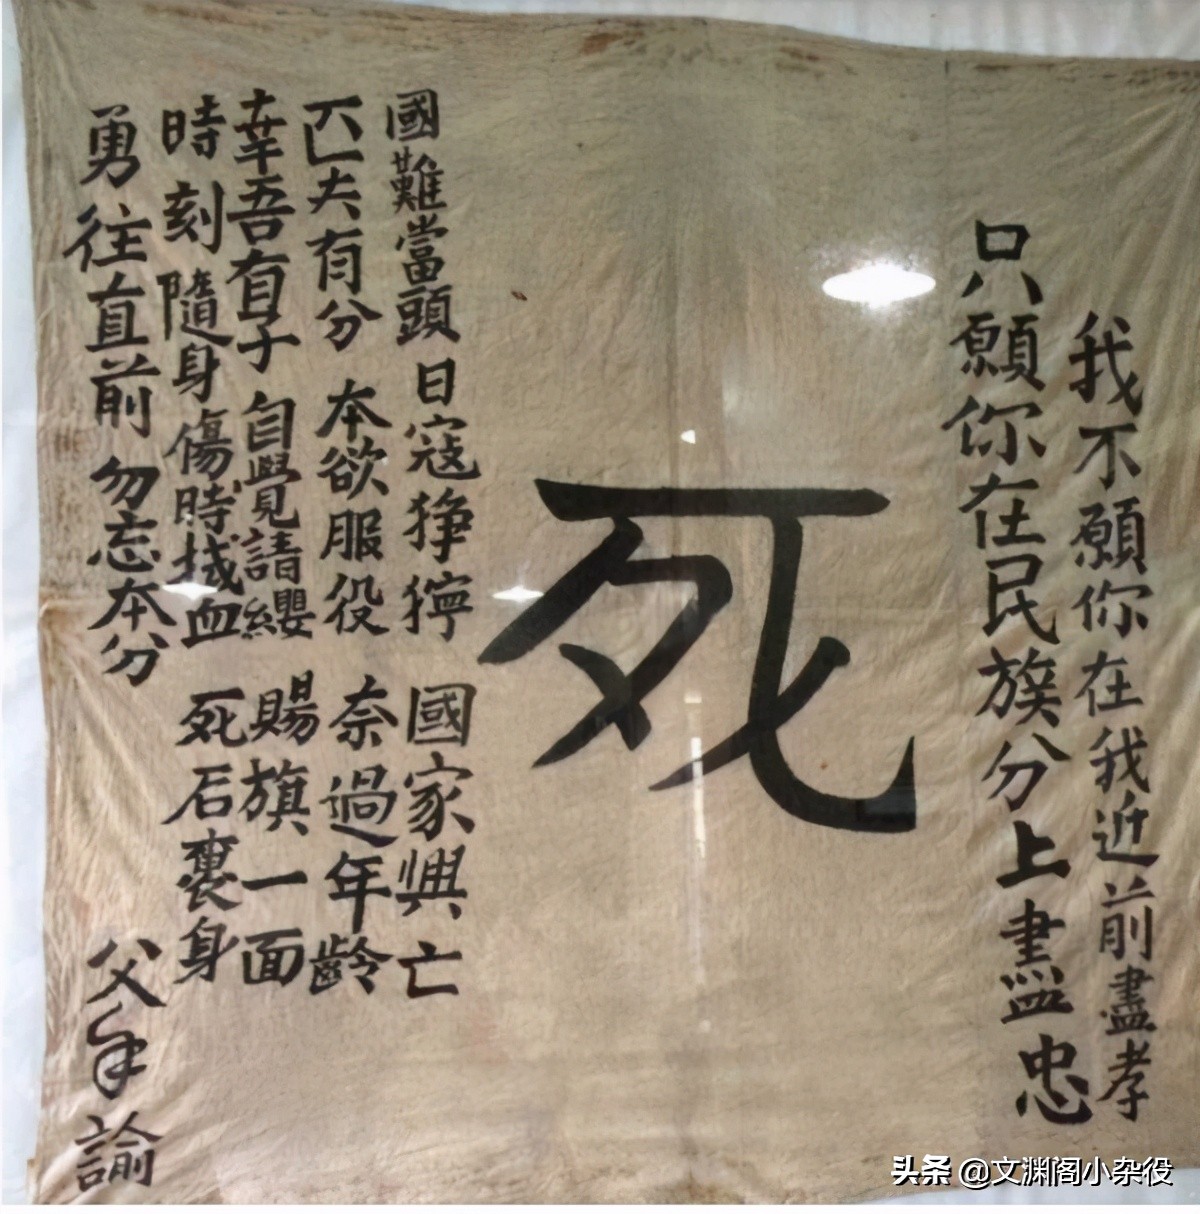 我不願你在我近前盡孝
只願你在民族分上盡忠
死
國難當頭 日寇猙獰 國家興亡
匹夫有分 本欲服役 奈過年齡
幸吾有子 自覺請纓 賜旗一面
時刻隨身 傷時拭血 死后裹身
勇往直前 勿忘本分
父手諭
头条 @文渊阁小杂役